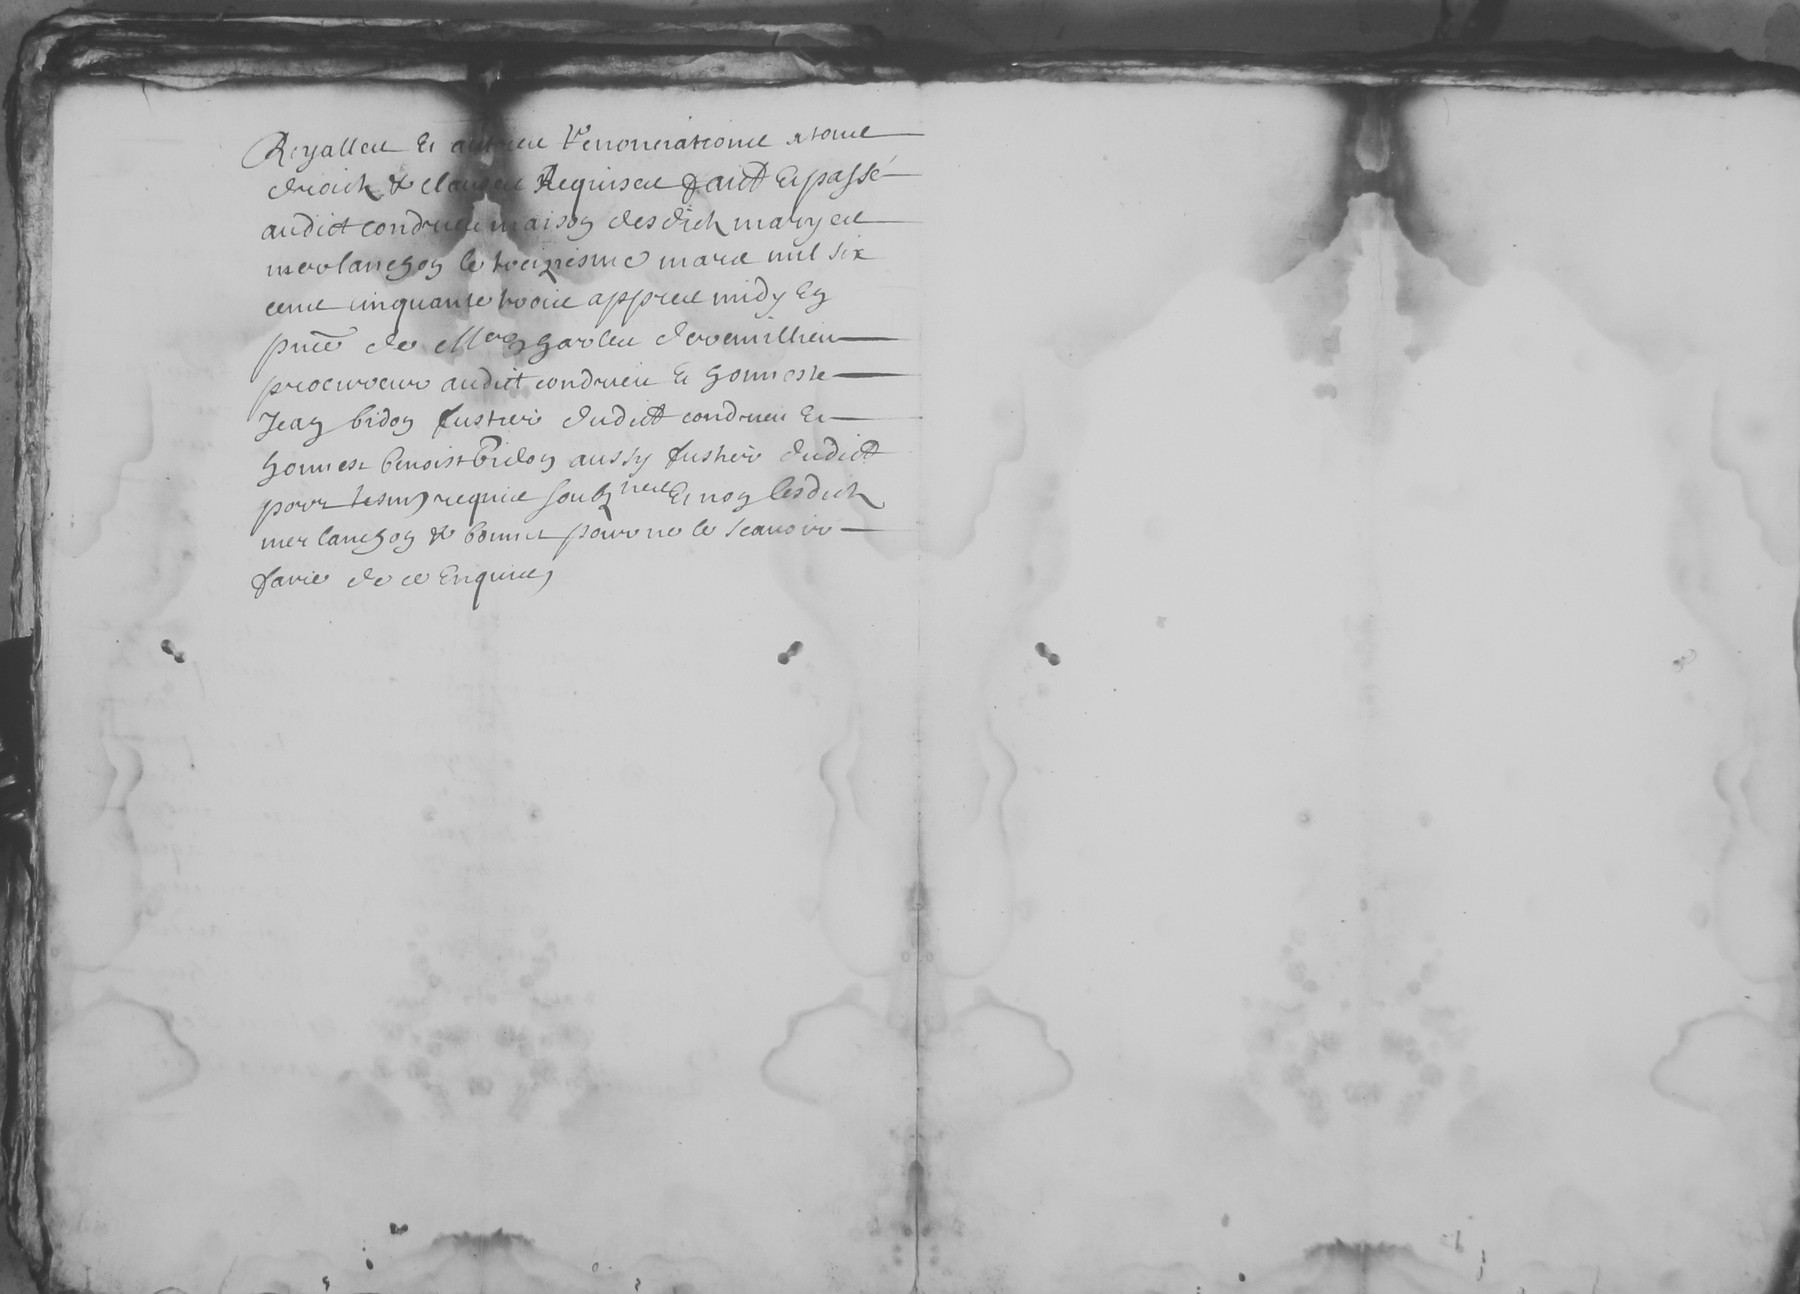 Royalles et aultres Renonciations a tous
droicts & clauses Requises faict et passé
audict condrieu maison desdicts maryes
merlanchon le treiziesme mars mil six
cens cinquante troies appres midy en
pnce de Mre charles devemillieu
procureur audict condrieu et honneste
Jean bidon fustier dudict condrieu et
honnest benoist bidon aussy fustier dudict
pour tesmo requis soubz nes et non lesdicts
merlanchon & bonnet pour ne le scauoir
faire de ce enquires